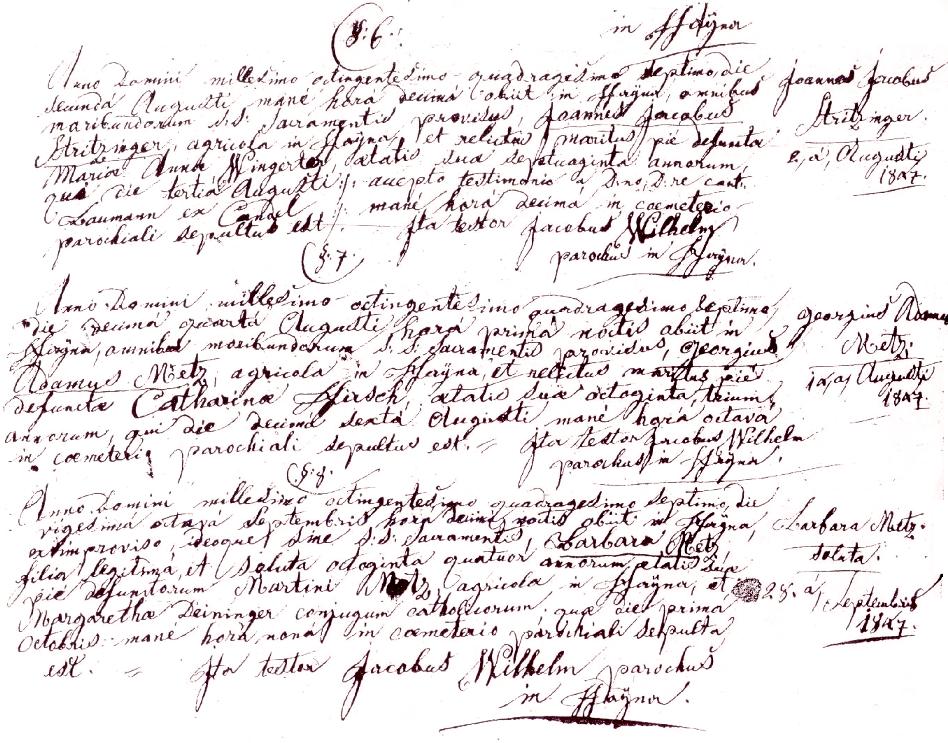 §: 6.
in Haÿna
Anno Domini millesimo octingentesimo quadragesimo septimo, die
secunda Augusti, mane hora decima obiit in Haÿna, omnibus
moribundorum s.s. Sacramentis provisus, Joannes Jacobus
Stritzinger, agricola in Haÿna, et relictus maritus pie defuncta
Mariæ Anna Wingerter ætatis sua septuaginta annorum,
qui die tertia Augusti /: accepto testimonio a Dno, D:re cant:
Baumann ex Candel :/ mane hora decima in cœmeterio
parochiali sepultus est. Ita testor Jacobus Wilhelm
parochus in Haÿna.
Joannes Jacobus
Stritzinger.
2, a, Augusti
1847.
§. 7.
Anno Domini millesimo octingentesimo quadragesimo septimo,
die decimá quarta Augusti, hora primá noctis obiit in
Haÿna, omnibus moribundorum s: s: Sacramentis provisus, Georgius
Adamus Metz, agricola in Haÿna, et relictus maritus pié
defunctæ Catharinæ Hirsch, ætatis suæ octoginta, trium,
annorum, qui die decima sextá Augusti mané horá octavá
in cœmeterio parochiali sepultus est. = Ita testor Jacobus Wilhelm
parochus in Haÿna.
Georgius Adamus
Metz.
14, a, Augusti
1847.
§. 8.
Anno Domini millesimo octingentesimo quadragesimo septimo, die
vigesima octavá Septembris, hora decima noctis obiit in Haÿna,
ex improviso, ideoque sine s: s: Sacramentis, Barbara Metz,
filia legitima, et soluta octoginta quatuor annorum ætatis sua
pie defunctorum Martini Metz, agricola in Haÿna, et
Margaretha Deininger conjugum catholicorum, quæ die prima
Octobris mane hora nona in cœmeterio parochiali sepulta
est. = Ita testor Jacobus Wilhelm parochus
in Haÿna.
Barbara Metz.
soluta.
28. a, Septembris
1847.